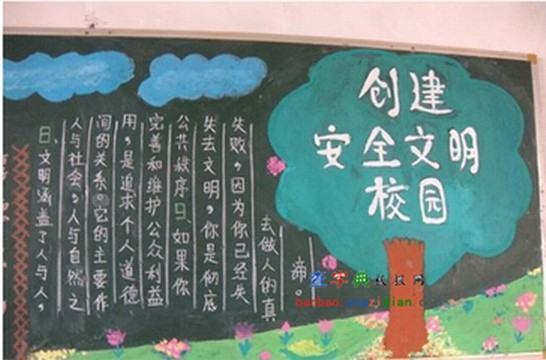 创建
安全文明
校园
日、文明涵盖了人与人，
人与社会，人与自然之
间的关系。它的主要作
用，是追求个人道德
完善和维护公众利益
公共秩序日、如果你
失去文明，你是彻底
失败，因为你已经失
去做人的真
帝。
字典 报网